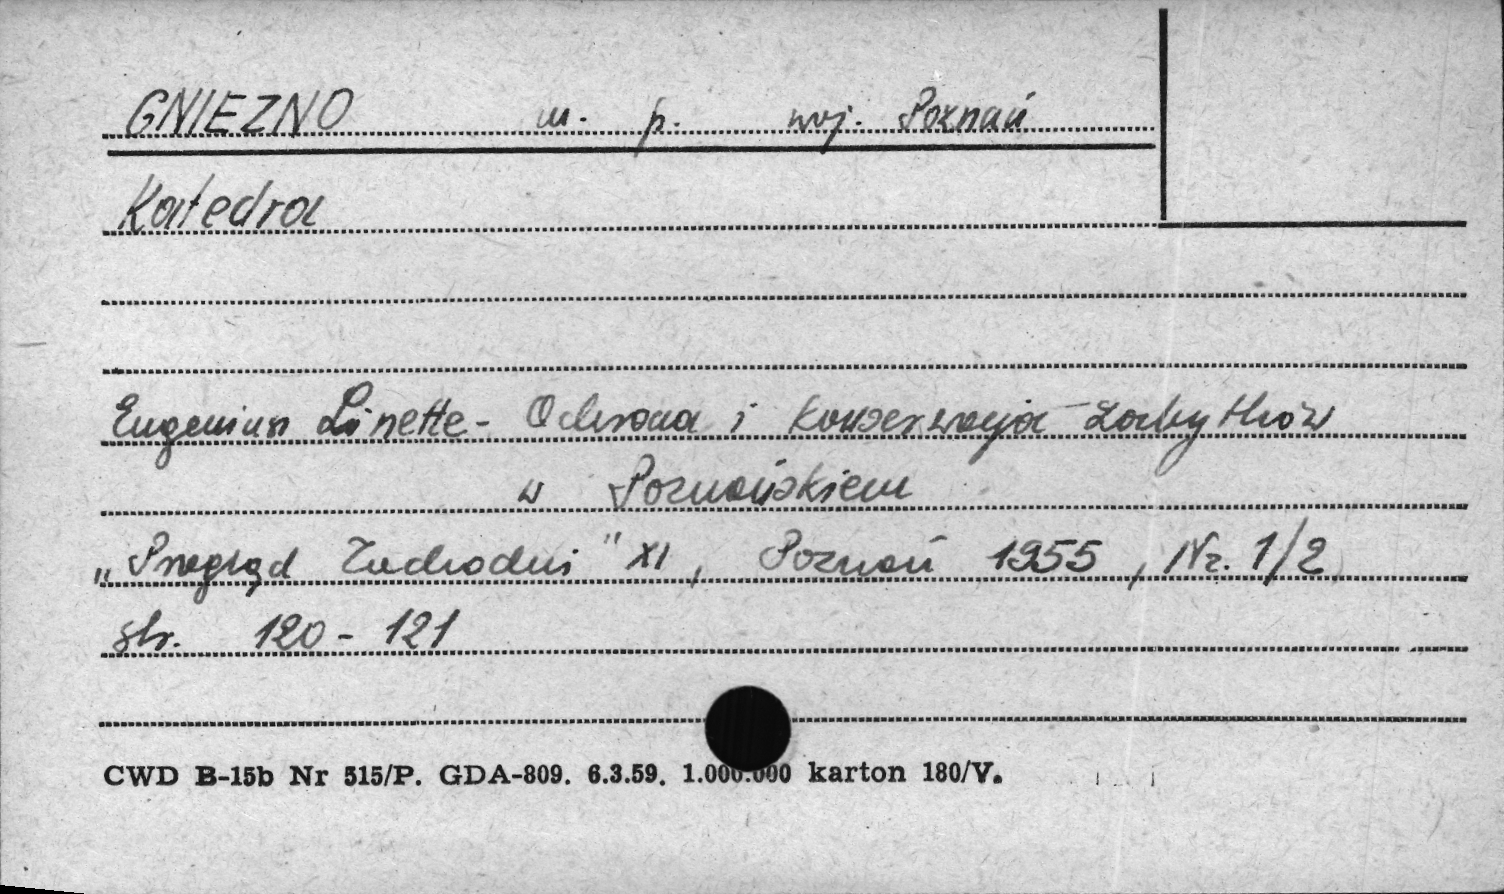 GNIEZNO m. p. woj. Poznań
Katedra
Eugeniusz Linette - Ochrona i konserwacja zabytków
w Poznańskiem
„Przegląd Zachodni" XI, Poznań 1955, Nr. 1/2
str. 120 - 121
CWD B-15b Nr 515/P. GDA-809. 6.3.59. 1.000.000 karton 180/V.